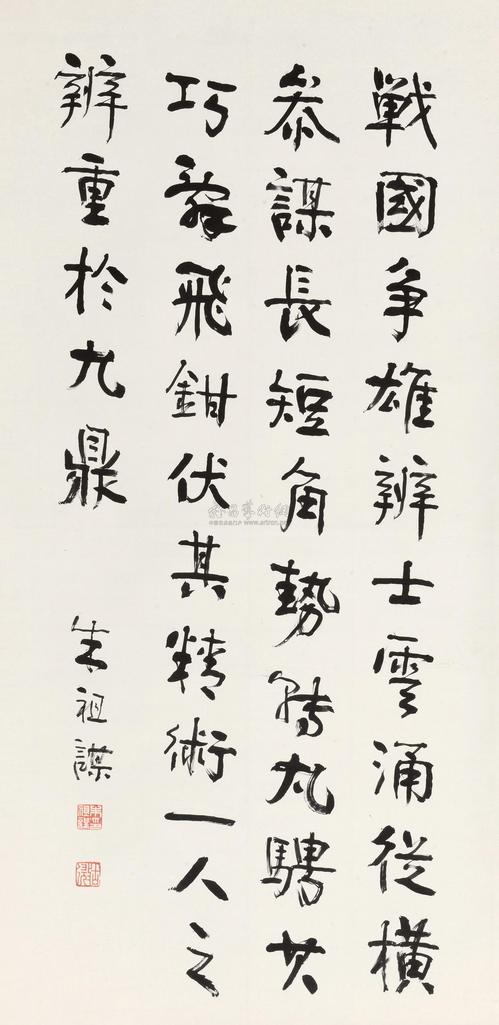 戰國争雄辨士雲涌從橫
叅謀長短角勢轉丸騁其
巧辭飛鉗伏其精術一人之
辨重於九鼎
朱祖謀